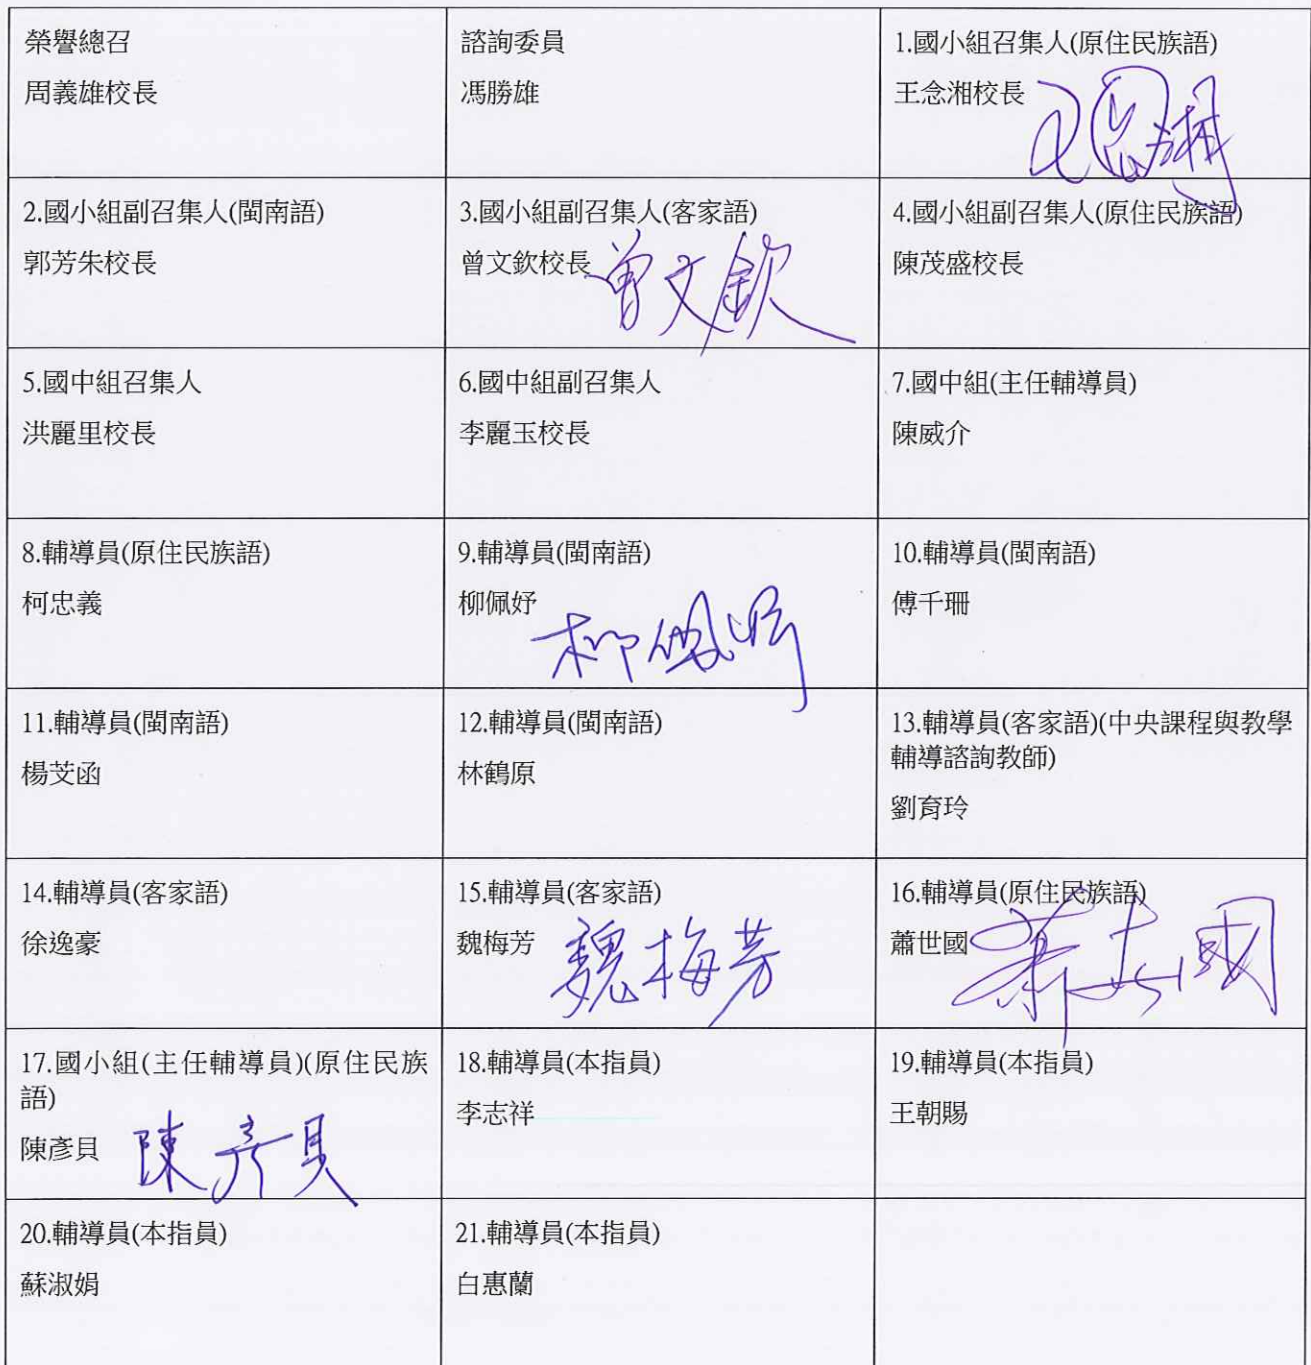 榮譽總召
周義雄校長
諮詢委員
馮勝雄
1.國小組召集人(原住民族語)
王念湘校長
2.國小組副召集人(閩南語)
郭芳朱校長
3.國小組副召集人(客家語)
曾文欽校長
曾文欽
4.國小組副召集人(原住民族語)
陳茂盛校長
5.國中組召集人
洪麗里校長
6.國中組副召集人
李麗玉校長
7.國中組(主任輔導員)
陳威介
8.輔導員(原住民族語)
柯忠義
9.輔導員(閩南語)
柳佩妤
柳佩妤
10.輔導員(閩南語)
傅千珊
11.輔導員(閩南語)
楊芠函
12.輔導員(閩南語)
林鶴原
13.輔導員(客家語)(中央課程與教學
輔導諮詢教師)
劉育玲
14.輔導員(客家語)
徐逸豪
15.輔導員(客家語)
魏梅芳
魏梅芳
16.輔導員(原住民族語)
蕭世國
17.國小組(主任輔導員)(原住民族
語)
陳彥貝
陳彥貝
18.輔導員(本指員)
李志祥
19.輔導員(本指員)
王朝賜
20.輔導員(本指員)
蘇淑娟
21.輔導員(本指員)
白惠蘭